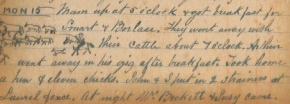 MON 15 Mam up at 5 o'clock & got breakfast for
Smart & Borlase. They went away with
their Cattle about 7 o'clock. Arthur
went away in his gig after breakfast. Took home
a hen & eleven chicks. John & I put in 2 Strainers at
Laurel fence. At night Mr Beckett & came.